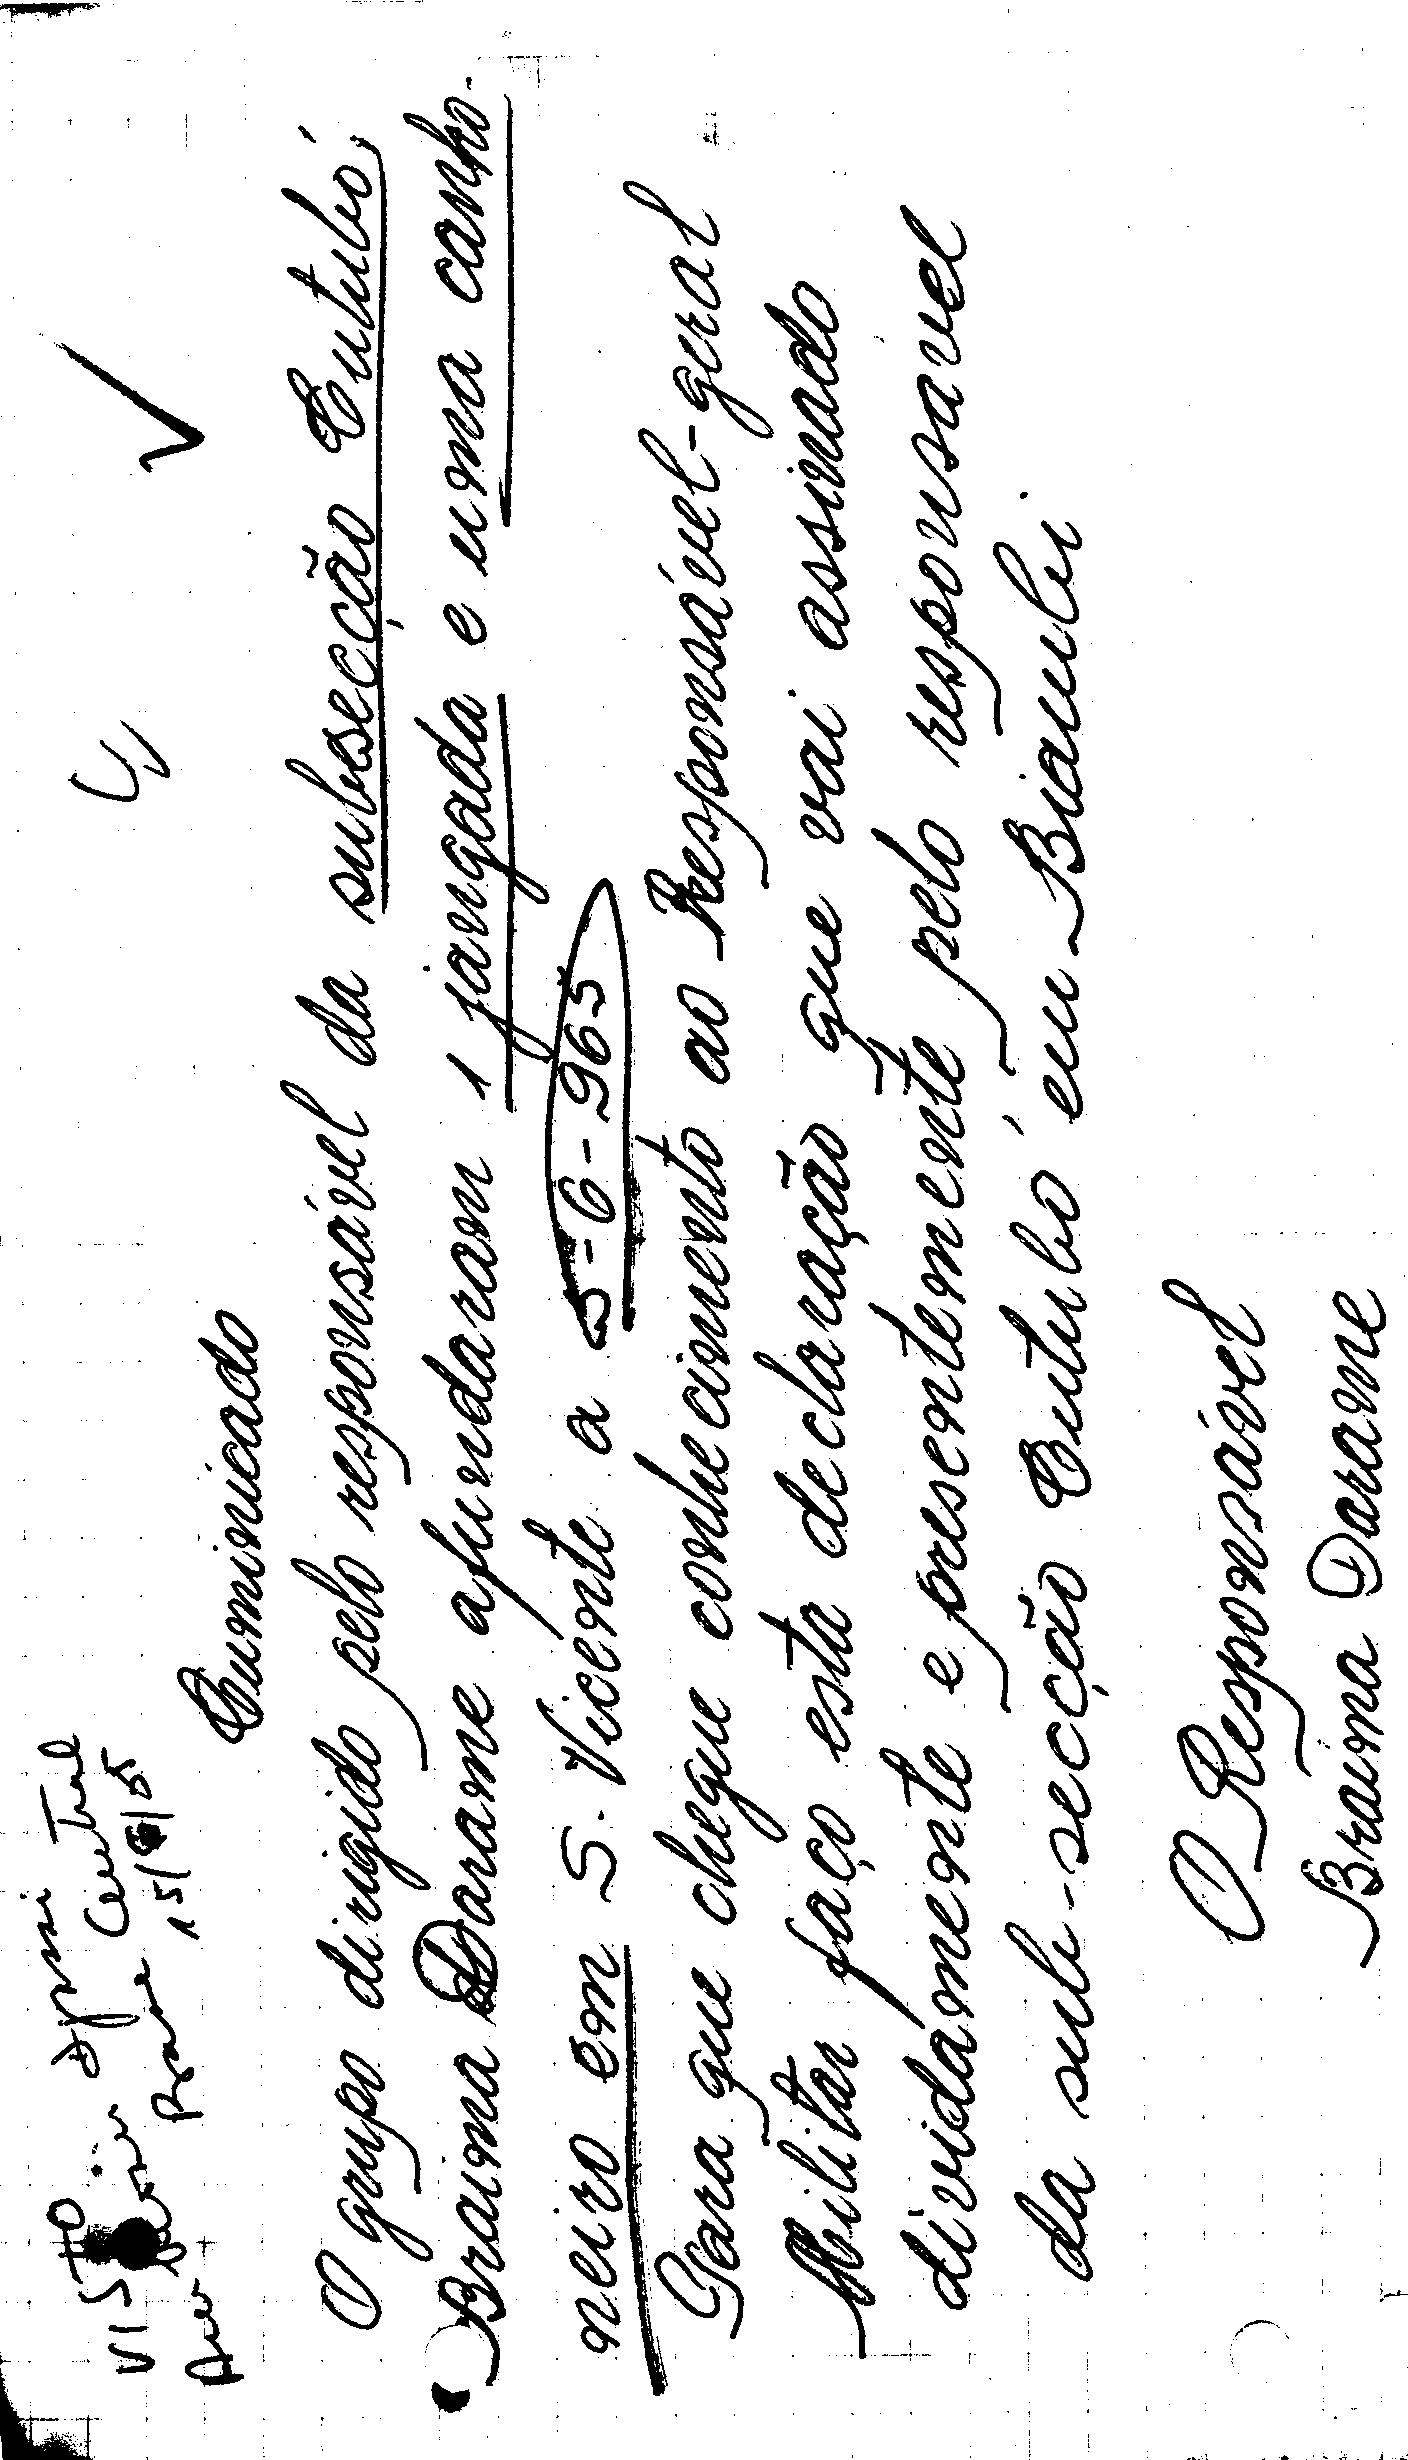 VISTO
Base Central
15/6/65
Cumunicado
O grupo dirigido pelo responsável da subsecção Cutubó,
Braima Darame afundaram 1 jangada e uma canho-
neiro em S. Vicente a 5-6-965
Para que chegue conhecimento ao Responsável-geral
Militar faço esta declaração que vai assinado
dividamente e presentemente pelo responsável
da sub-secção Cutubó em Biambi.
O Responsável
Braima Darame